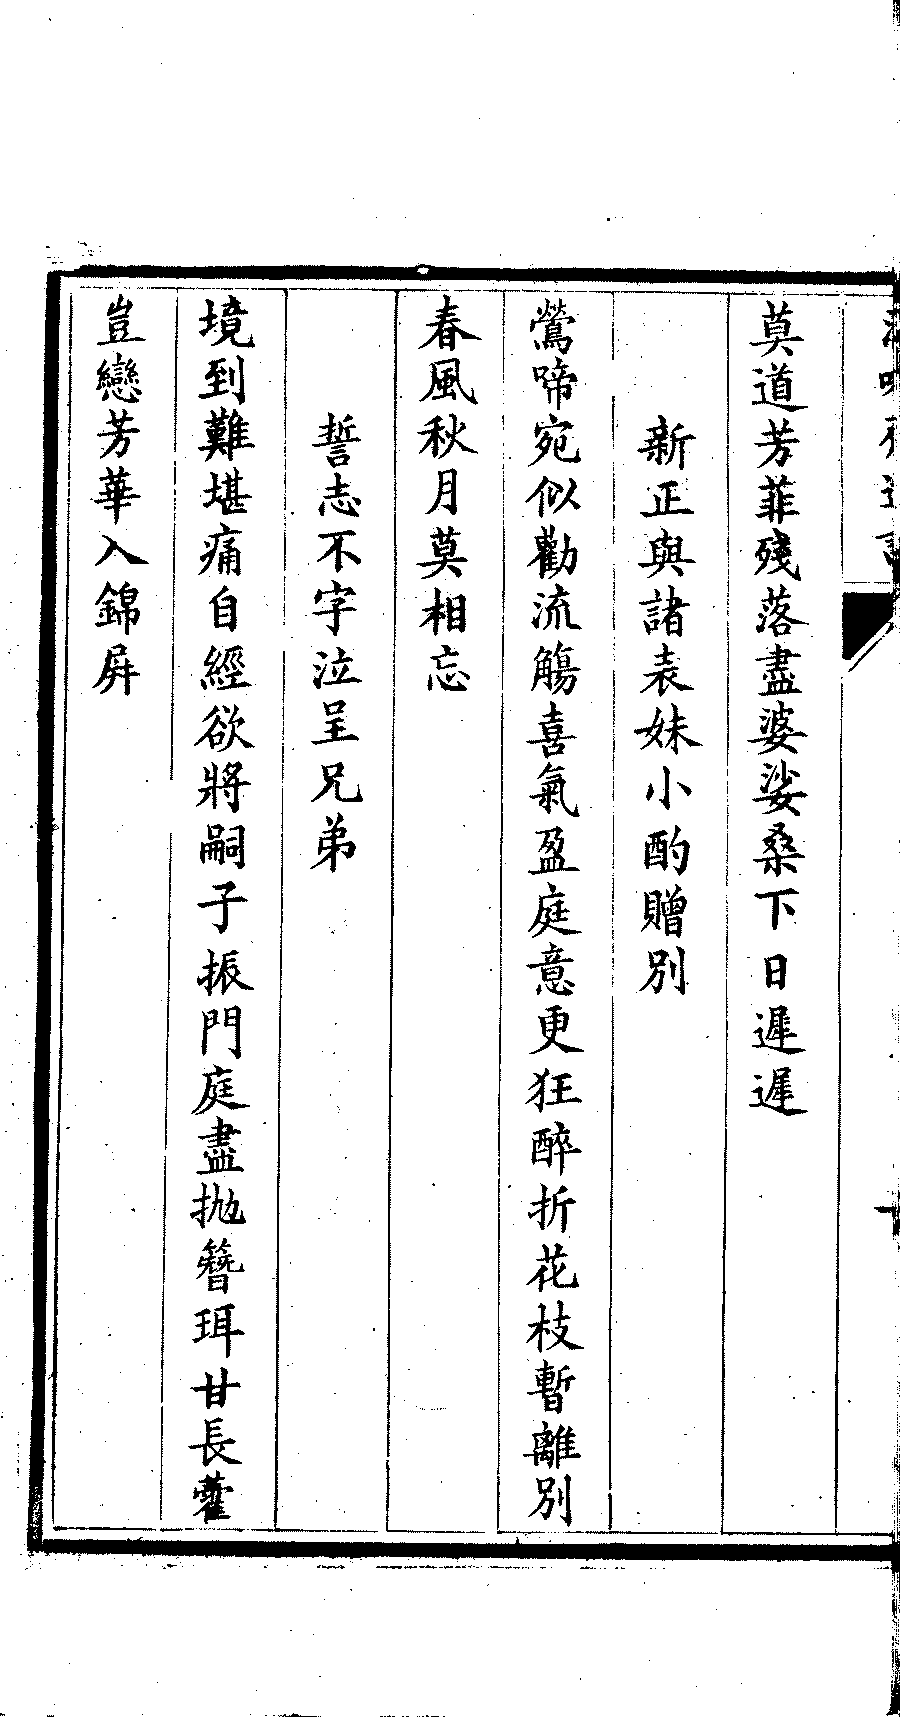 莫道芳菲殘落盡婆娑桑下日遲遲
新正與諸表妹小酌贈別
鶯啼宛似勸流觴喜氣盈庭意更狂醉折花枝暫離別
春風秋月莫相忘
誓志不字泣呈兄弟
境到難堪痛自經欲將嗣子振門庭盡拋簪珥甘長藿
豈戀芳華入錦屏